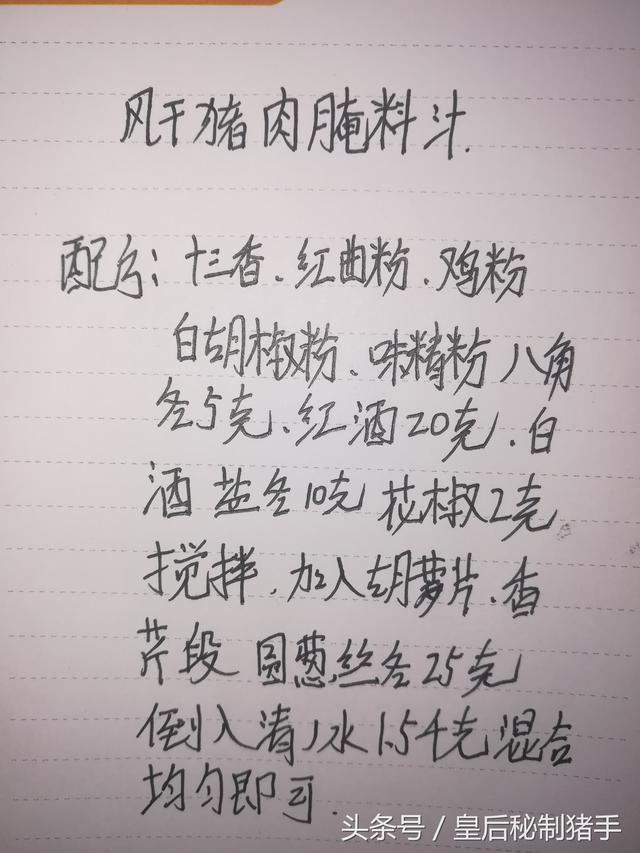 风干猪肉腌料汁.
配方:十三香、红曲粉、鸡粉
白胡椒粉、味精粉八角
各5克、红酒20克、白
酒 盐各10克 花椒2克
搅拌,加入胡萝片、香
芹段 圆葱丝各25克
倒入清水1.5千克混合
均匀即可.
头条号/皇后秘制猪手